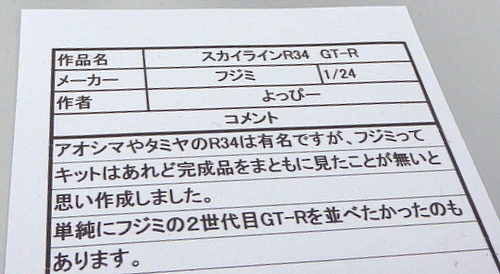 作品名 スカイラインR34 GT-R
メーカー フジミ 1/24
作者 よっぴー
コメント
アオシマやタミヤのR34は有名ですが、フジミって
キットはあれど完成品をまともに見たことが無いと
思い作成しました。
単純にフジミの2世代目GT-Rを並べたかったのも
あります。